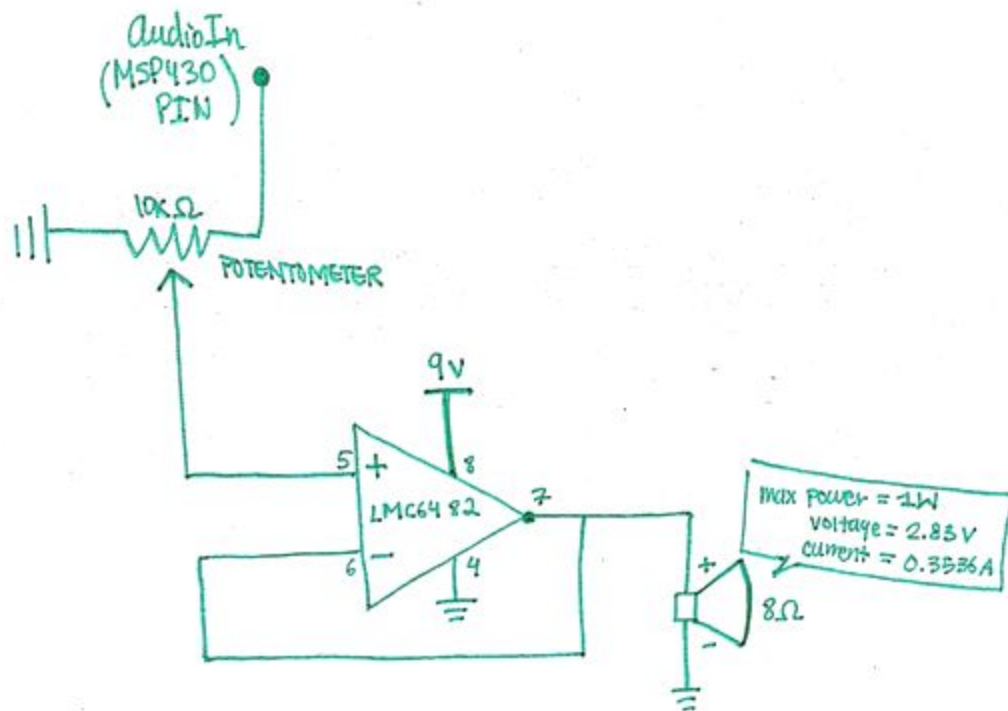 AudioIn
(MSP430
PIN)
10KΩ
POTENTOMETER
9V
5
+
8
LMC6482
7
6
-
4
max power = 1W
voltage = 2.83V
current = 0.3536A
+
8Ω
-